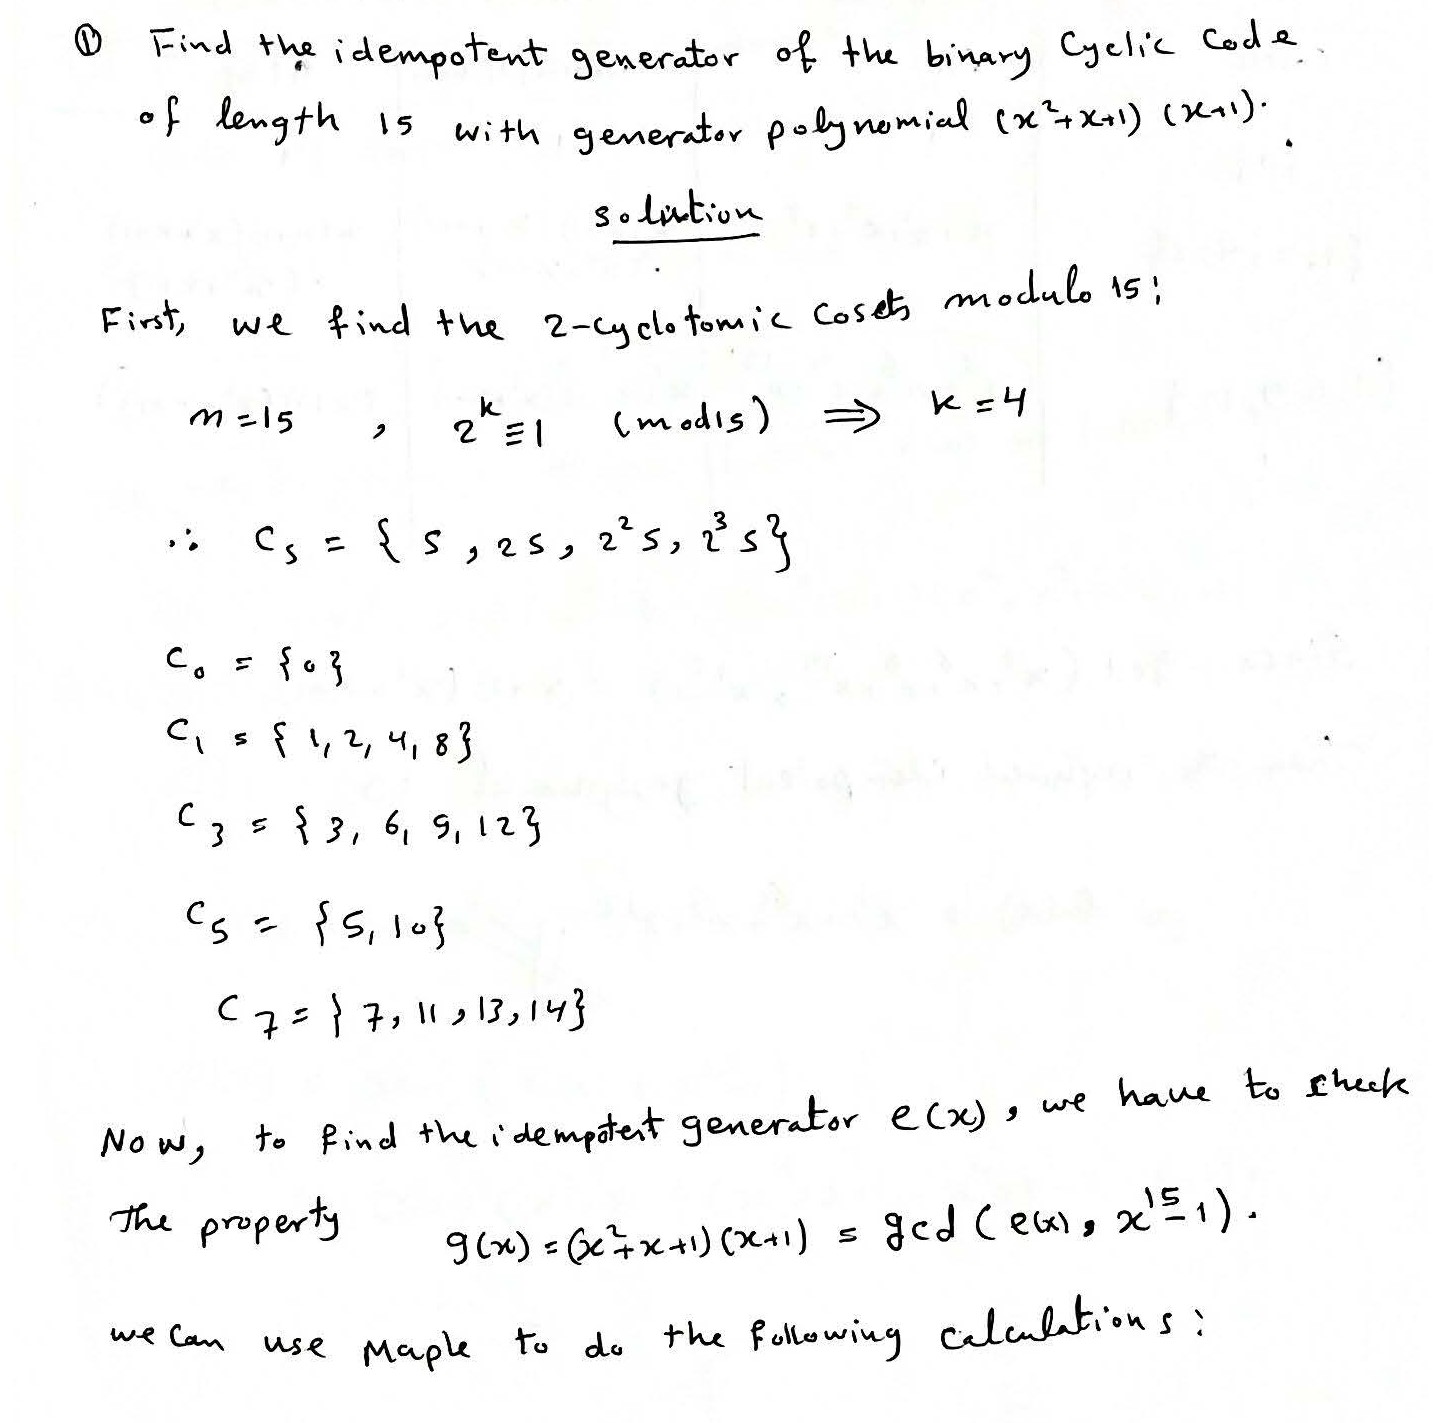 ① Find the idempotent generator of the binary Cyclic Code
of length 15 with generator polynomial (x²+x+1) (x+1).
solution
First, we find the 2-cyclotomic Cosets modulo 15;
n=15 , 2^k ≡ 1 (mod 15) ⇒ k=4
∴ C_s = { s, 2s, 2²s, 2³s}
C_0 = {0}
C_1 = { 1, 2, 4, 8}
C_3 = { 3, 6, 9, 12}
C_5 = {5, 10}
C_7 = { 7, 11, 13, 14}
Now, to find the idempotent generator e(x), we have to check
The property g(x) = (x²+x+1) (x+1) = gcd ( e(x), x^15 - 1).
we can use Maple to do the following calculations: